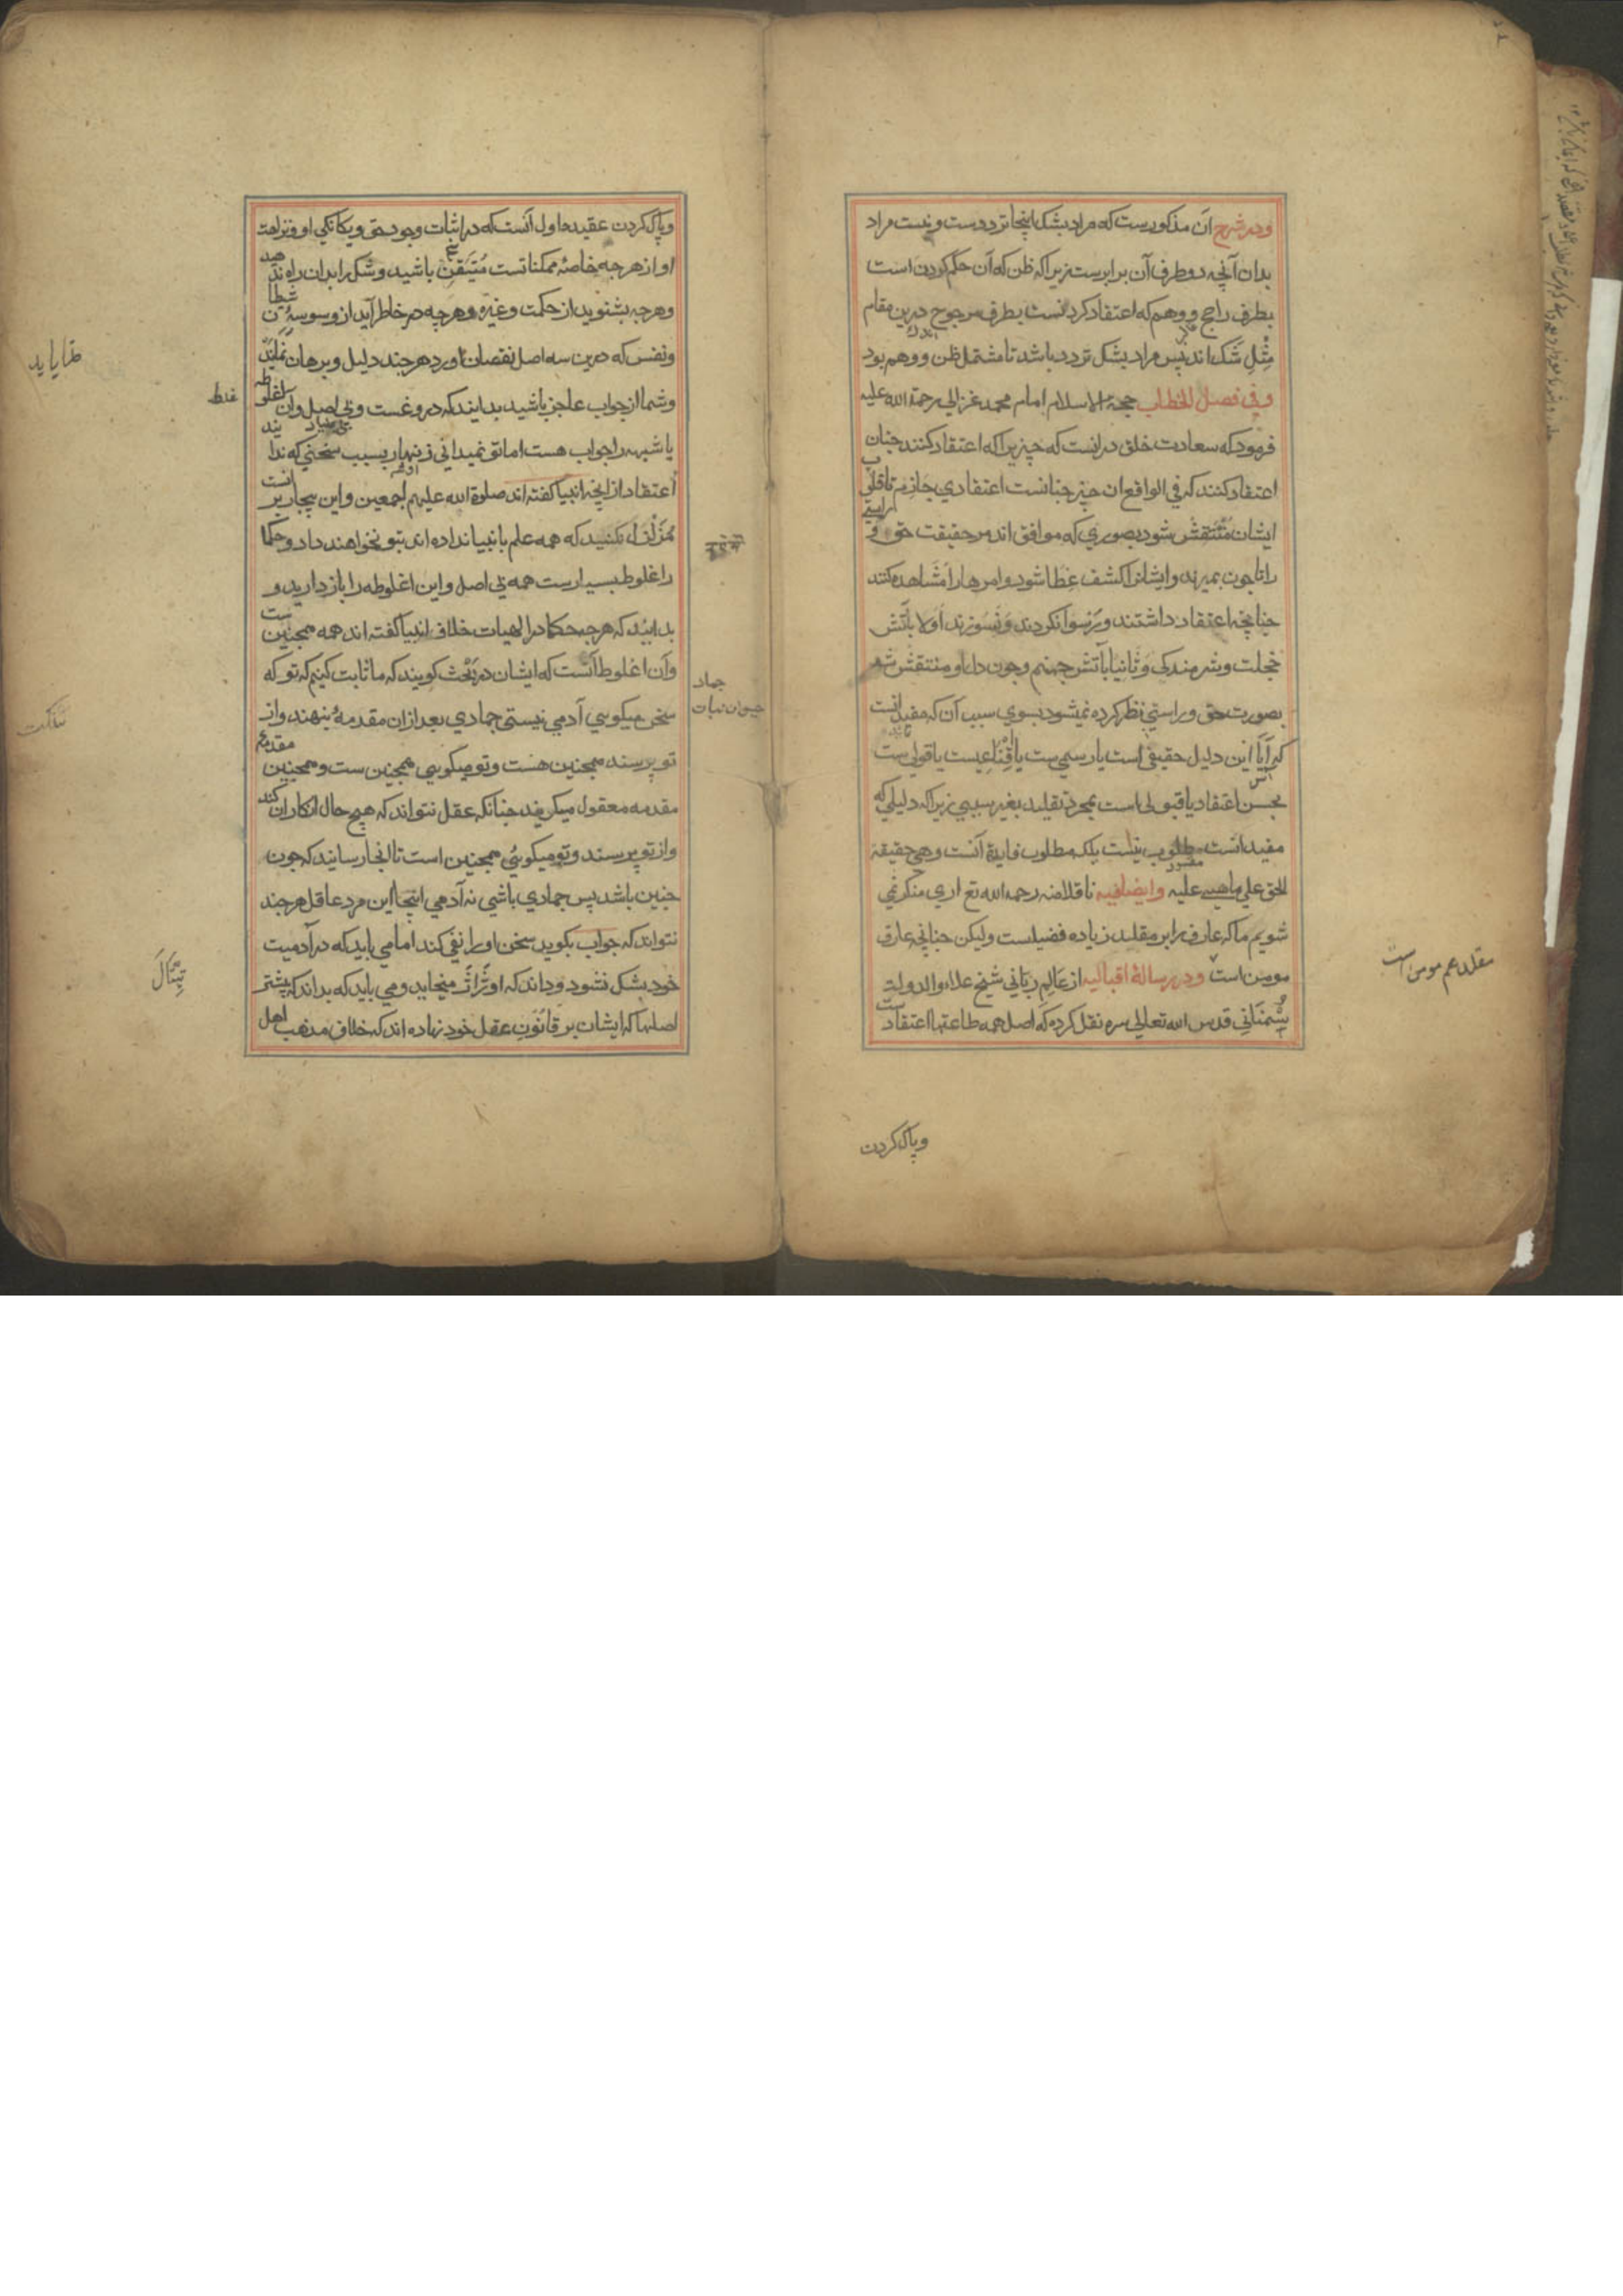 ودر شرح آن مذکورست که مراد بشک اینجا ترددست ونیست مراد
بدان آنچه دو طرف آن برابرست زیرا که ظن که آن حکم کردن است
بطرف راجح و وهم که اعتقاد کردنست بطرف مرجوح درین مقام
مثل شک اند پس مراد بشک تردد باشد تا مشتمل ظن و وهم بود
وفی فصل الخطاب حجة الاسلام امام محمد غزالی رحمة الله علیه
فرمود که سعادت خلق در انست که چیزیرا که اعتقاد کنند چنان
اعتقاد کنند که فی الواقع ان چیز چنانست اعتقادی جازم تا قلوب
ایشان منتقش شود بصوری که موافق اند مر حقیقت حق و راستی
را تا چون بمیرند و ایشانرا کشف غطا شود و امرها را مشاهده کنند
چنانچه اعتقاد داشتند و رسوا نکردند و نسوزند اولا بآتش
خجلت و شرمندکی و ثانیا بآتش جهنم و چون دل او منتقش شد
بصورت حق و راستی نظر کرده نمیشود بسوی سبب آن که مفید انست
که آیا این دلیل حقیقی است یا رسمی ست یا اقناعیست یا قولی ست
بحسن اعتقاد یا قبولی است بمجرد تقلید بغیر سببی زیرا که دلیلی که
مفید انست مطلوب نیست بلکه مطلوب فایدة آنست وهی حقیقة
مقصود
الحق علی ماهیی علیه وایضا فیه ناقلا منه رحمه الله تع اری منکر نمی
شویم ما که عارف را بر مقلد زیاده فضیلست ولیکن چنانچه عارف
مومن است ودر رسالهٔ اقبالیه از عالم ربانی شیخ علاء الدوله
سمنانی قدس الله تعالی سره نقل کرده که اصل همه طاعتها اعتقادست
مقلد هم مومن است
وپاک کردن
وپاک کردن عقیده اول آنست که در اثبات وجود حق ویکانکی او ونزاهت
او از هر چه خاصهٔ ممکناتست متیقن باشید و شک را بدان راه ندهید
وهر چه بشنوید از حکمت وغیره وهر چه در خاطر آید از وسوسهٔ شیطان
ونفس که درین سه اصل نقصان اورد هر چند دلیل و برهان نماید
وشما از جواب عاجز باشید بدانید که دروغست وبی اصل وآن اغلوطه
بی بنیاد
یا شبهه را جواب هست اما تو نمیدانی زنهار بسبب سخنی که ندانید
اعتقاد از آنچه انبیا کفته اند صلوة الله علیهم اجمعین
متزلزل نکنید که همه علم بانبیا نداده اند بتو نخواهند داد وحکما
را غلوط بسیارست همه بی اصل و این اغلوطه را باز دارید و
بدانید که هر چه حکما در الهیات خلاف انبیا کفته اند همه همچنین ست
وآن اغلوطه آنست که ایشان در بحث کویند که ما ثابت کنیم که تو که
سخن میکویی آدمی نیستی جمادی بعد ازان مقدمه بنهند واز
تو پرسند همچنین هست وتو میکویی همچنین ست وهمچنین مقدمه
مقدمه معقول میکویند چنانکه عقل نتواند که هیچ حال انکار ان کند
واز تو پرسند وتو میکویی همچنین است تا انجا رسانند که چون
چنین باشد پس جمادی باشی نه آدمی اینجا این مرد عاقل هر چند
نتواند که جواب بکوید سخن او را نفی کند اما می باید که در آدمیت
خود بشک نشود وداند که او ژاژ میخاید ومی باید که بداند که بیشتر
اصلها که ایشان بر قانون عقل خود نهاده اند که خلاف مذهب اهل
غلط
جماد
حیوان نبات